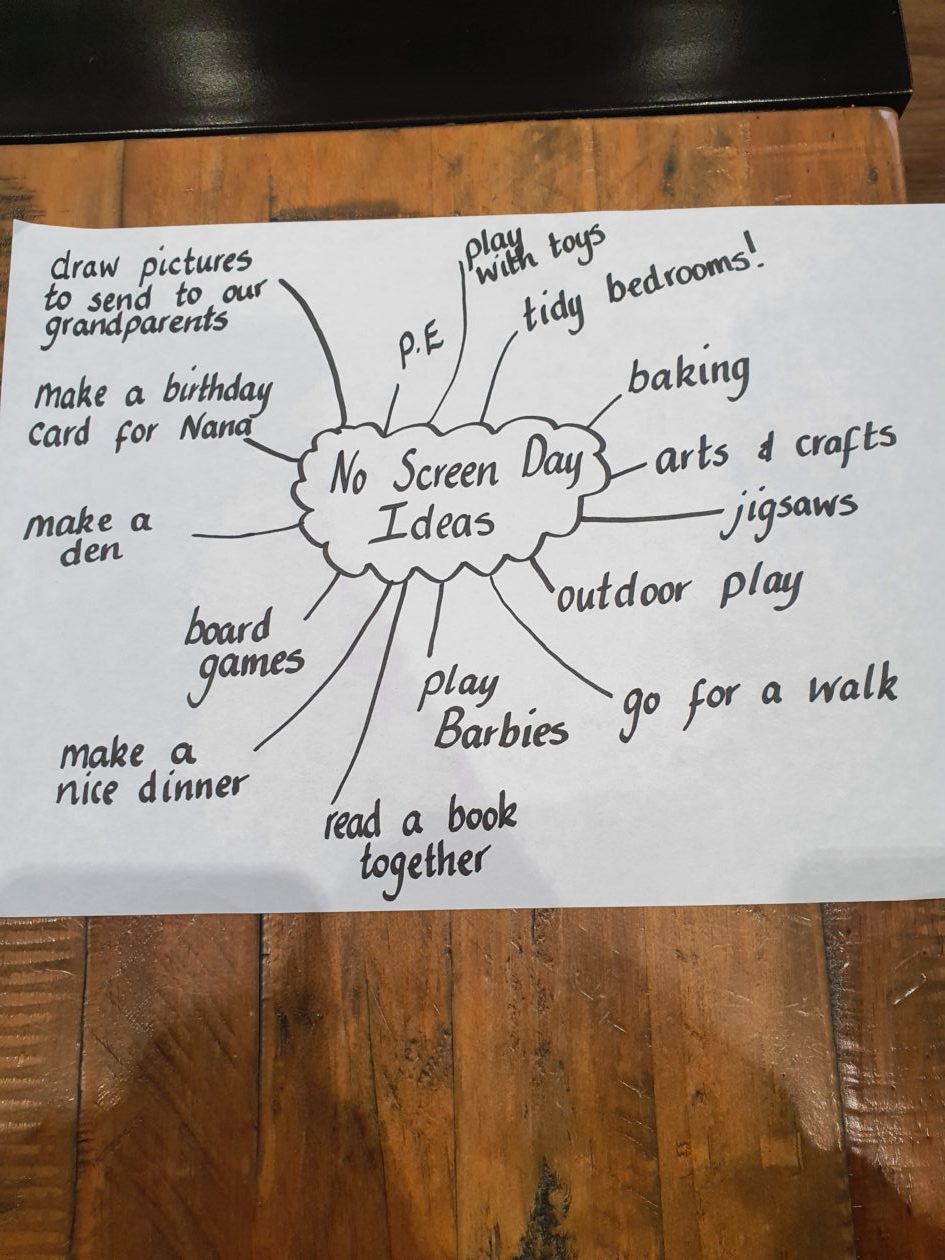 No Screen Day
Ideas
draw pictures
to send to our
grandparents
P.E
play
with toys
tidy bedrooms!
baking
arts & crafts
jigsaws
outdoor play
go for a walk
play
Barbies
read a book
together
make a
nice dinner
board
games
make a
den
make a birthday
card for Nana